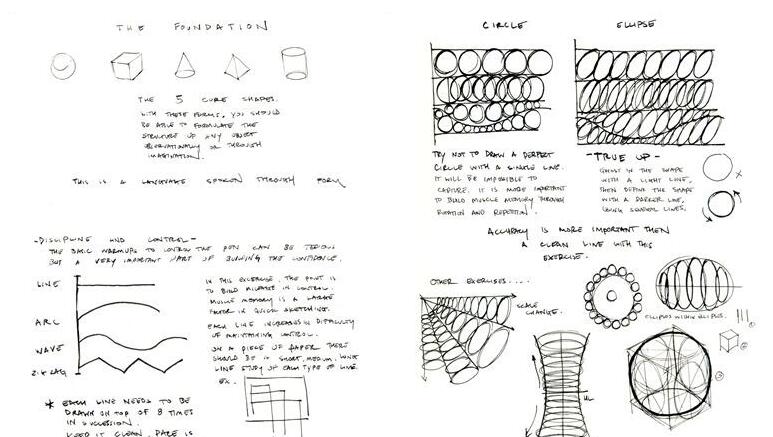 THE FOUNDATION
THE 5 CORE SHAPES.
WITH THESE FORMS, YOU SHOULD
BE ABLE TO FORMULATE THE
STRUCTURE OF ANY OBJECT
OBSERVATIONALLY OR THROUGH
IMAGINATION.
THIS IS A LANGUAGE SPOKEN THROUGH FORM
-DISCIPLINE AND CONTROL-
THE BASIC WARMUPS TO CONTROL THE PEN CAN BE TEDIOUS
BUT A VERY IMPORTANT PART OF BUILDING THE CONFIDENCE.
LINE
ARC
WAVE
ZIG ZAG
IN THIS EXCERCISE, THE POINT IS
TO BUILD MILEAGE IN CONTROL.
MUSCLE MEMORY IS A LARGE
FACTOR IN QUICK SKETCHING.
EACH LINE INCREASES IN DIFFICULTY
OF MAINTAINING CONTROL.
ON A PIECE OF PAPER THERE
SHOULD BE A SHORT, MEDIUM, LONG
LINE STUDY OF EACH TYPE OF LINE.
EX.
* EACH LINE NEEDS TO BE
DRAWN ON TOP OF 8 TIMES
IN SUCCESSION.
KEEP IT CLEAN. PACE IS
CIRCLE
ELLIPSE
TRY NOT TO DRAW A PERFECT
CIRCLE WITH A SINGLE LINE.
IT WILL BE IMPOSSIBLE TO
CAPTURE. IT IS MORE IMPORTANT
TO BUILD MUSCLE MEMORY THROUGH
ROTATION AND REPETITION.
-TRUE UP-
GHOST IN THE SHAPE
WITH A LIGHT LINE,
THEN DEFINE THE SHAPE
WITH A DARKER LINE,
USING SEVERAL LINES.
X
ACCURACY IS MORE IMPORTANT THEN
A CLEAN LINE WITH THIS
EXERCISE.
OTHER EXERCISES....
SCALE
CHANGE.
ELLIPSES WITHIN ELLIPSES.
HL
1
2
3